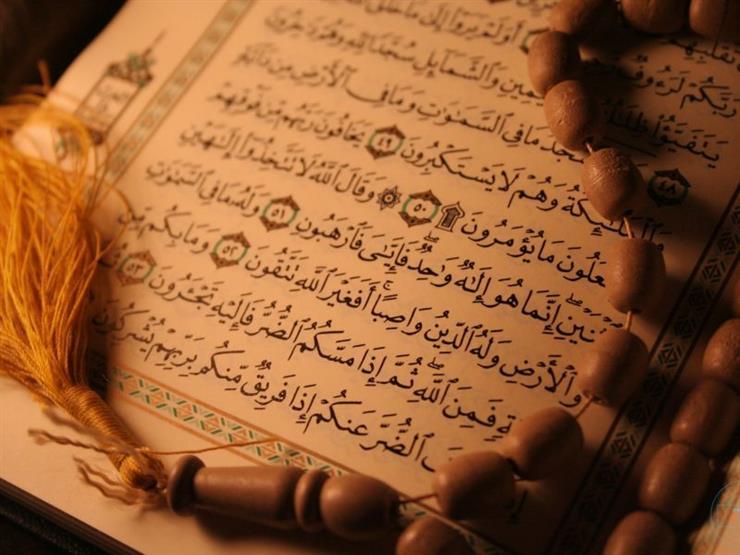 تَقَلُّبِهِمْ
رَبَّكُمْ لَرَءُوفٌ أَوَلَمْ يَرَوْا۟ إِلَىٰ مَا خَلَقَ
يَتَفَيَّؤُا۟ ظِلَٰلُهُۥ ٱلْيَمِينِ وَٱلشَّمَآئِلِ سُجَّدًا لِّلَّهِ وَهُمْ دَٰخِرُونَ
٤٨ يَسْجُدُ مَا فِى ٱلسَّمَٰوَٰتِ وَمَا فِى ٱلْأَرْضِ مِن دَآبَّةٍ
وَٱلْمَلَٰٓئِكَةُ وَهُمْ لَا يَسْتَكْبِرُونَ ٤٩ يَخَافُونَ رَبَّهُم مِّن فَوْقِهِمْ
وَيَفْعَلُونَ مَا يُؤْمَرُونَ ۩ ٥٠ ۞ وَقَالَ ٱللَّهُ لَا تَتَّخِذُوٓا۟ إِلَٰهَيْنِ
ٱثْنَيْنِ ۖ إِنَّمَا هُوَ إِلَٰهٌ وَٰحِدٌ ۖ فَإِيَّٰىَ فَٱرْهَبُونِ ٥١ وَلَهُۥ مَا فِى ٱلسَّمَٰوَٰتِ
وَٱلْأَرْضِ وَلَهُ ٱلدِّينُ وَاصِبًا ۚ أَفَغَيْرَ ٱللَّهِ تَتَّقُونَ ٥٢ وَمَا بِكُم مِّن
فَمِنَ ٱللَّهِ ۖ ثُمَّ إِذَا مَسَّكُمُ ٱلضُّرُّ فَإِلَيْهِ تَجْـَٔرُونَ ٥٣
ٱلضُّرَّ عَنكُمْ إِذَا فَرِيقٌ مِّنكُم بِرَبِّهِمْ يُشْرِكُونَ